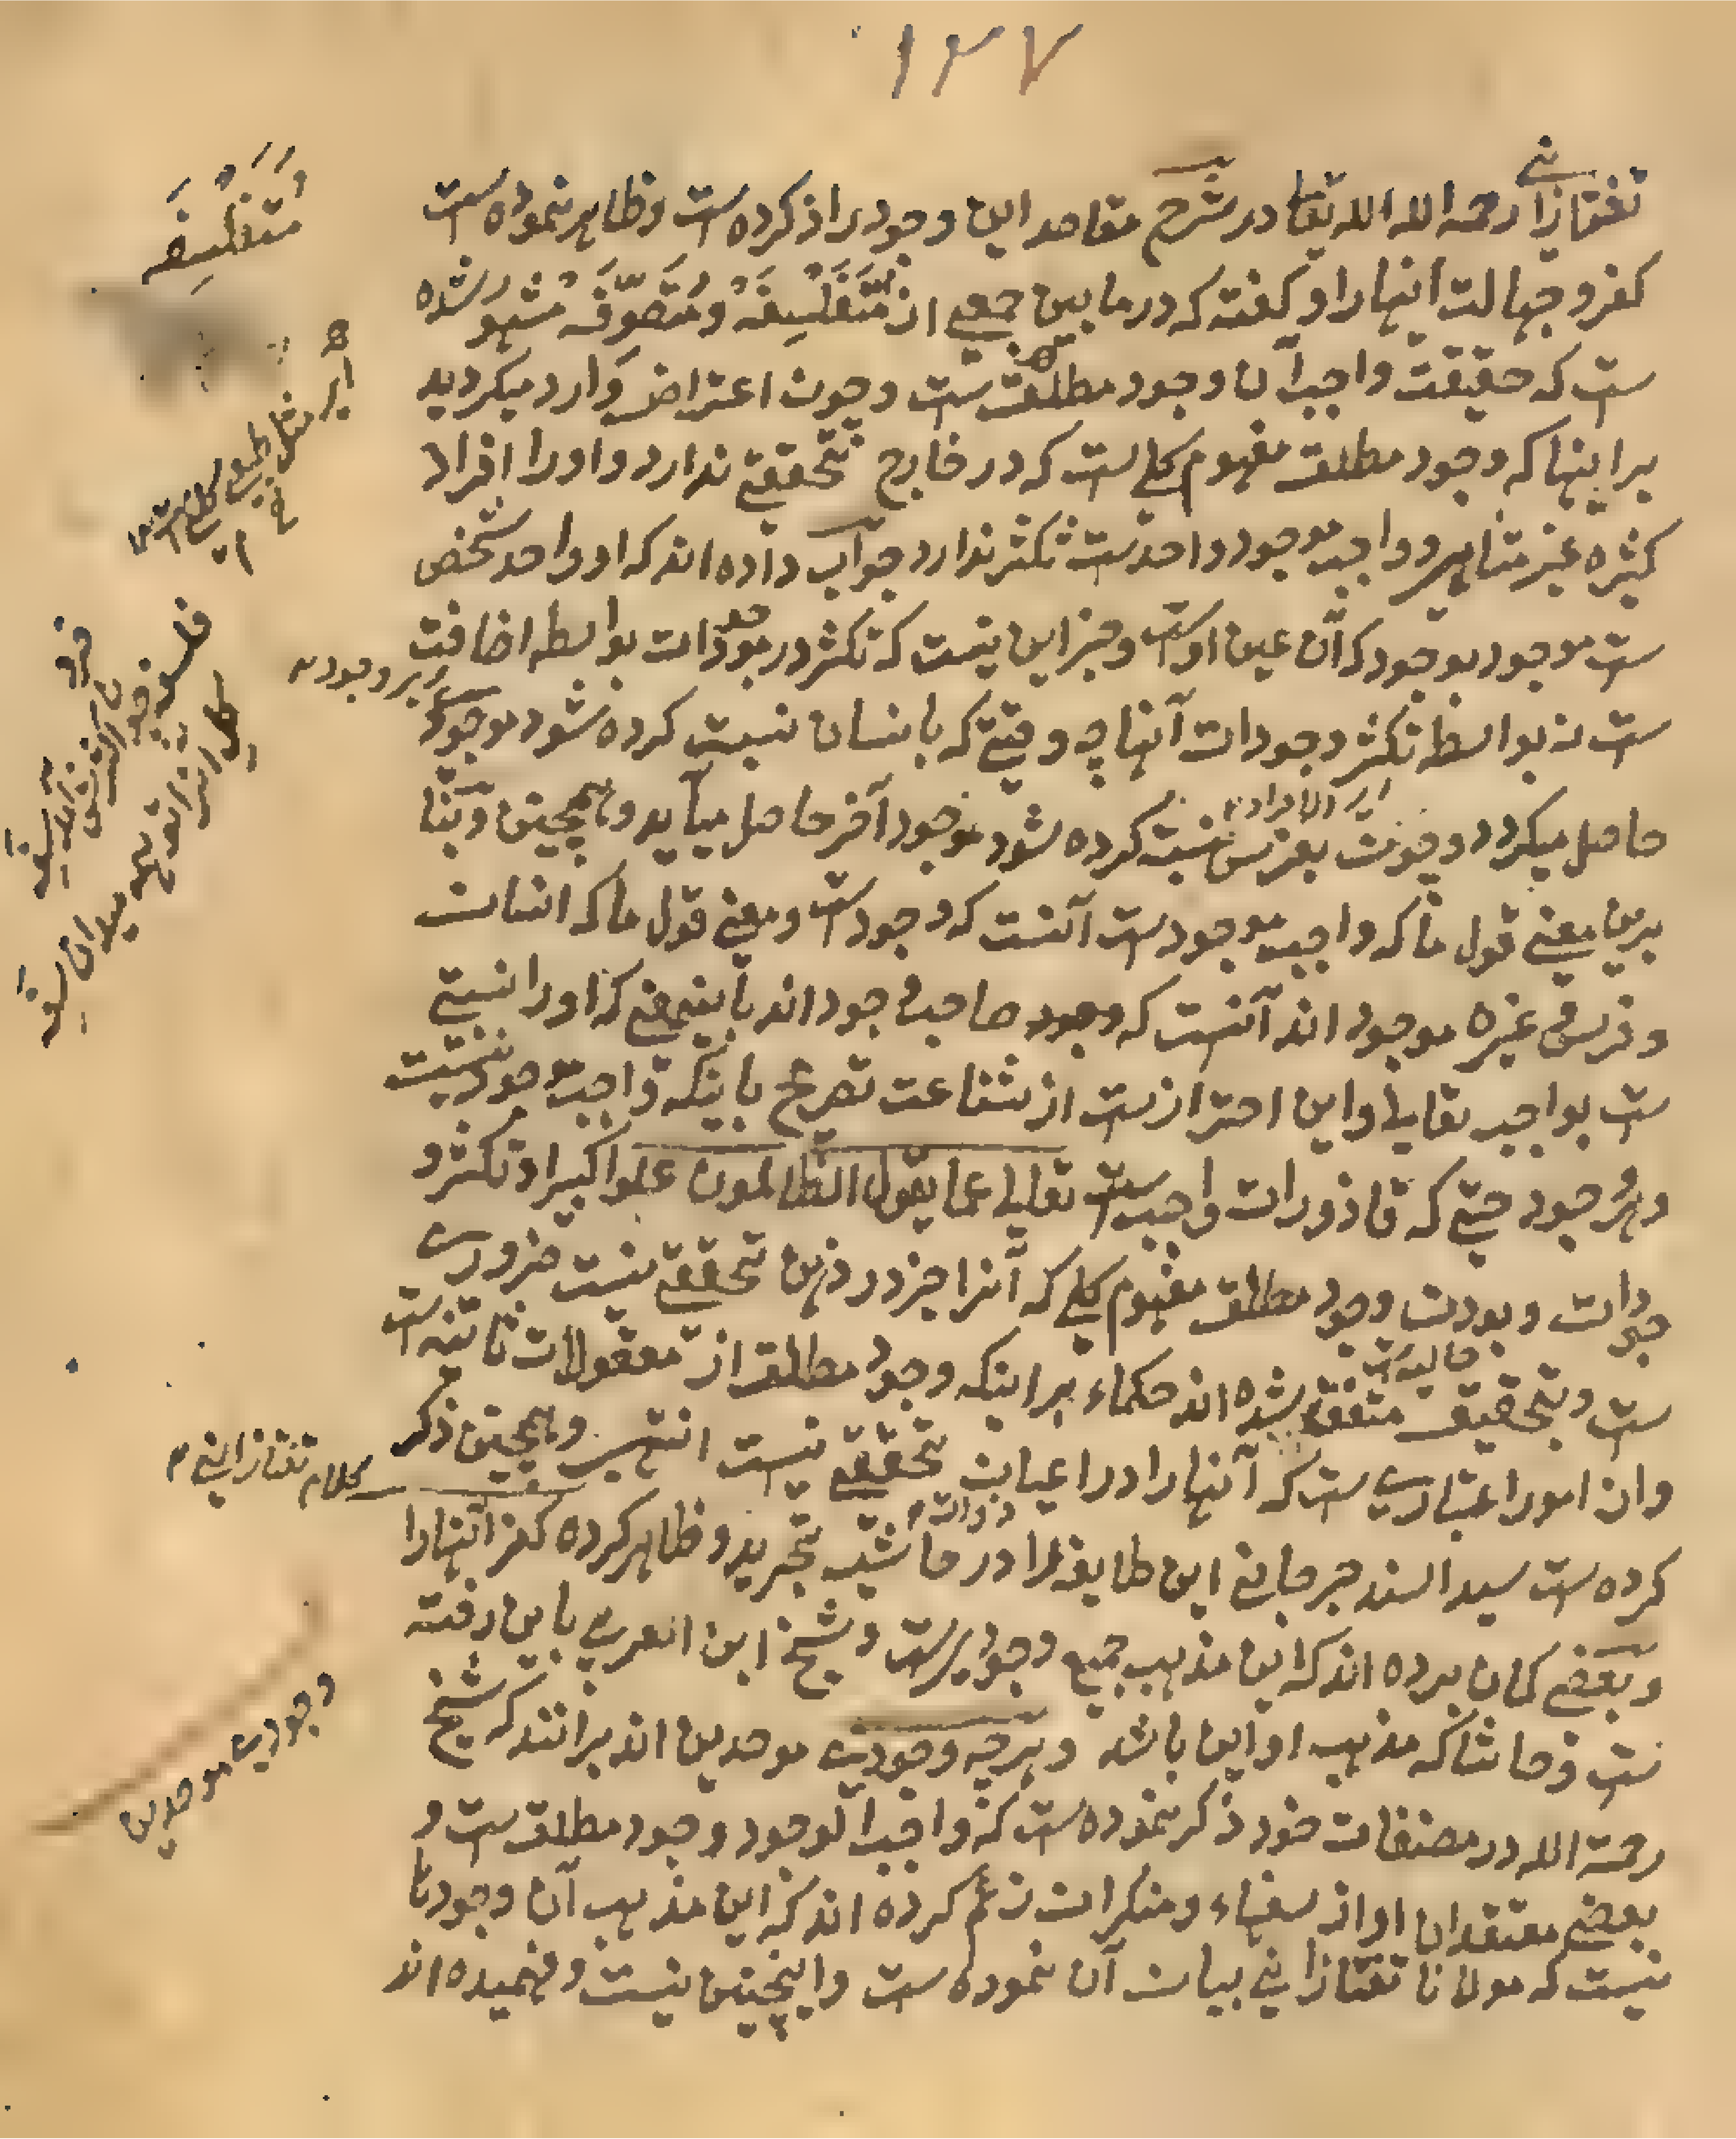 ١٣٧
تفتازانی رحمه الله تعالی در شرح مقاصد این وجود را ذکر کرده ست و ظاهر نموده ست
کفر و جهالت اینها را و کفته که در ما بین جمعی از مُتَفَلْسِفَه و مُتَصَوِّفَه مشهور شده
ست که حقیقت واجب آن وجود مطلق ست و چون اعتراض وارد میکردید
بر اینها که وجود مطلق مفهوم کلی ست که در خارج تحققی ندارد و او را افراد
کثیره غیر متناهی و واجب موجود واحد ست تکثر ندارد جواب داده اند که او واحد شخص
ست موجود بوجود که آن عین اوست و جز این نیست که تکثر در موجودات بواسطه اضافت
ست نه بواسطه تکثر وجودات آنها چه وقتی که بانسان نسبت کرده شود موجودی
حاصل میکردد و چون بفرس نسبت کرده شود موجود آخر حاصل میآید و همچنین و بنا
برین معنی قول ما که واجب موجود ست آنست که وجود ست و معنی قول ما که انسان
و فرس و غیره موجود اند آنست که وجود صاحب وجود اند باینمعنی که او را نسبتی
ست بواجب تعالی و این احتراز ست از شناعت تصریح باینکه واجب موجود نیست
و هر وجود حتی که قاذورات واجب ست تعالی عما یقول الظالمون علوا کبیرا و تکثر و
جودات و بودن وجود مطلق مفهوم کلی که آنرا جز در ذهن تحققی نیست ضروری
ست و بتحقیق متفق شده اند حکماء بر اینکه وجود مطلق از معقولات ثانیه ست
و از امور اعتباری ست که آنها را در اعیان تحققی نیست انتهی و همچنین ذکر
کرده ست سید السند جرجانی این طایفه را در حاشیه تجرید و ظاهر کرده کفر آنها را
و بعضی کمان برده اند که این مذهب جمیع وجودیه ست و شیخ ابن العربی باین رفته
ست و حاشا که مذهب او این باشد و هرچه وجودیه موحدین اند برانند که شیخ
رحمة الله در مصنفات خود ذکر نموده ست که واجب الوجود وجود مطلق ست و
بعضی معتقدان او از سفهاء و منکران زعم کرده اند که این مذهب آن وجودها
نیست که مولانا تفتازانی بیان آن نموده ست و اینچنین نیست و فهمیده اند
مُتَفَلْسِفَه
کلام تفتازانی
وجودیه موحدین